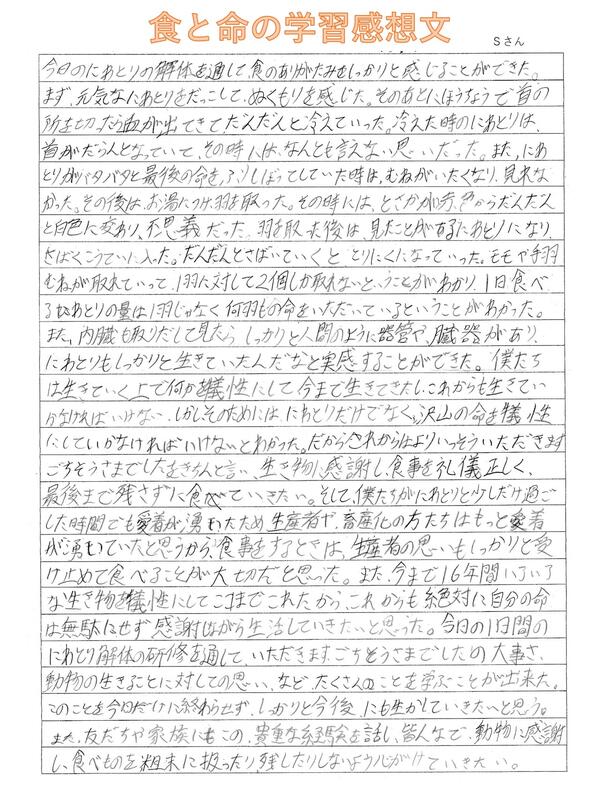 食と命の学習感想文
Sさん
今日のにわとりの解体を通して、食のありがたみをしっかりと感じることができた。
まず、元気なにわとりをだっこして、ぬくもりを感じた。そのあとにほうちょうで首の
所を切ったら血が出てきてだんだんと冷えていった。冷えた時のにわとりは、
首がだらんとなっていて、その時には、なんとも言えない思いだった。また、にわ
とりがバタバタと最後の命をふりしぼってしていた時は、むねがいたくなり、見れな
かった。その後は、お湯につけ羽を取った。その時には、とさかが赤色からだんだん
と白色に変わり、不思議だった。羽を取った後は、見たことがあるにわとりになり、
さばくこうていに入った。だんだんとさばいていくと、とりにくになっていった。モモや手羽
むねが取れていって、1羽に対して2個しか取れないということがわかり、1日食べ
るにわとりの量は1羽じゃなく何羽もの命をいただいているということがわかった。
また、内臓も取りだして見たら、しっかりと人間のように器管や、臓器があり、
にわとりもしっかりと生きていたんだなと実感することができた。僕たち
は生きていく上で何かを犠性にして今まで生きてきたし、これからも生きてい
かなければいけない。しかしそのためには、にわとりだけでなく、沢山の命を犠性
にしていかなければいけないとわかった。だからこれからはよりいっそういただきます
ごちそうさまでしたをきちんと言い、生き物に感謝し、食事を礼儀正しく、
最後まで残さずに食べていきたい。そして、僕たちがにわとりと少しだけ過ご
した時間でも愛着が湧いたため生産者や、畜産化の方たちはもっと愛着
が湧いていたと思うから、食事をするときは、生産者の思いもしっかりと受
け止めて食べることが大切だと思った。また、今まで16年間いろいろ
な生き物を犠性にしてここまでこれたから、これからも絶対に自分の命
は無駄にせず感謝しながら生活していきたいと思った。今日の1日間の
にわとり解体の研修を通して、いただきます、ごちそうさまでしたの大事さ、
動物の生きることに対しての思い、など、たくさんのことを学ぶことが出来た。
このことを今日だけに終わらせず、しっかりと今後にも生かしていきたいと思う。
また、友だちや家族にもこの、貴重な経験を話し、皆んなで、動物に感謝
し、食べものを粗末に扱ったり残したりしないよう心がけていきたい。